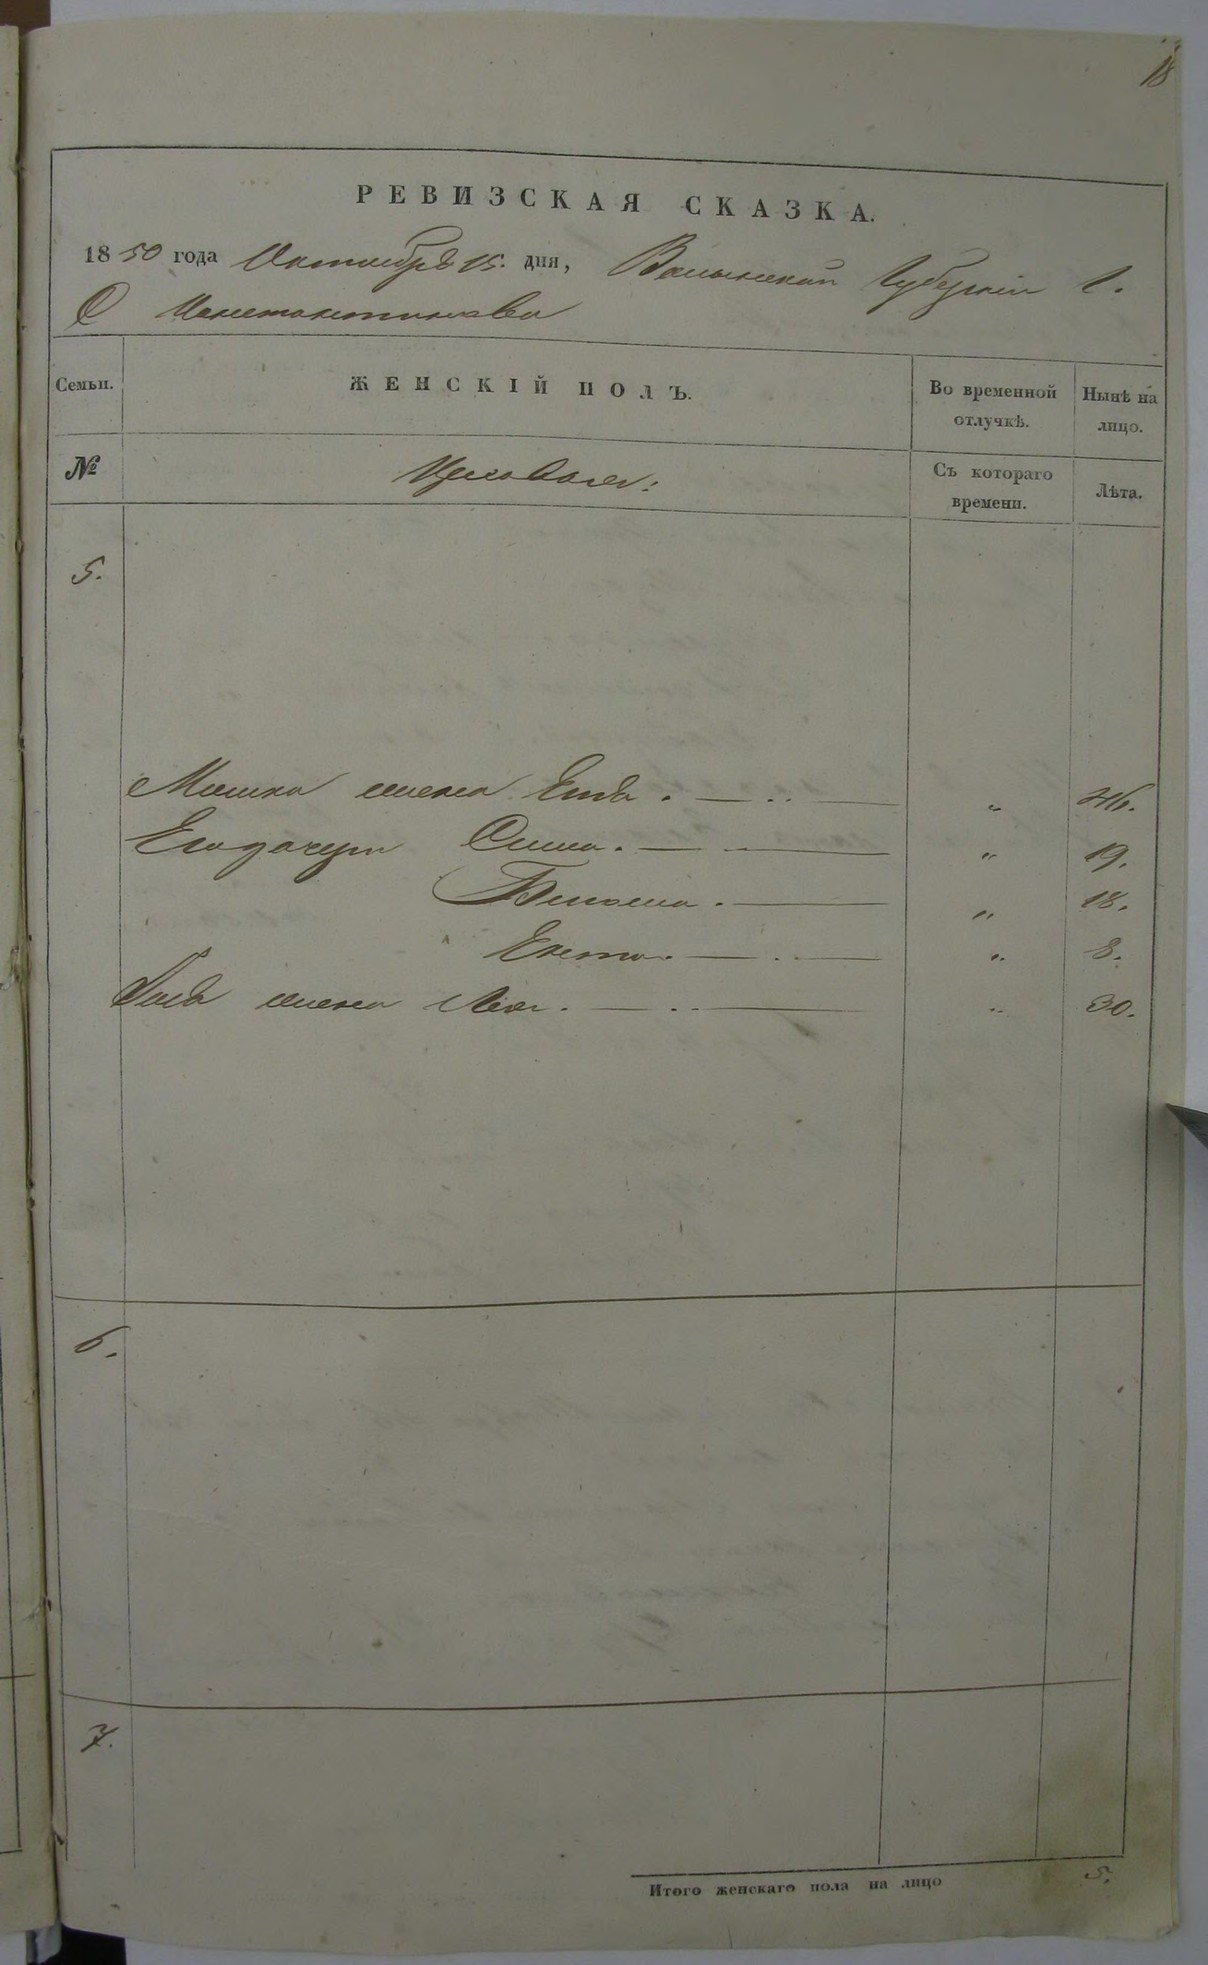 18
РЕВИЗСКАЯ СКАЗКА.
1850 года Октября 15. дня, Волынской Губерніи
Семьи.
ЖЕНСКІЙ ПОЛЪ.
Во временной отлучкѣ.
Нынѣ на лицо.
№
Съ котораго времени.
Лѣта.
5.
Мошка жена . — .. — „ 46.
Его дочери Сима. — — „ 19.
. — „ 18.
Ента. — . — „ 8.
жена Лея. — .. — „ 30.
6.
7.
Итого женскаго пола на лицо 5.